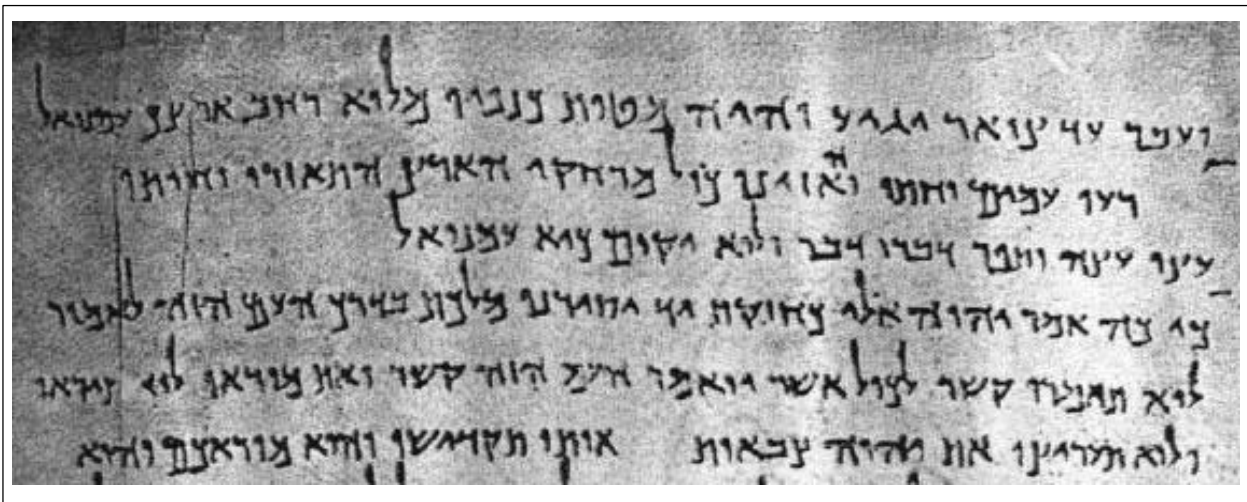 ועבר עד צואר יגיע והיה מטות כנפיו מלוא רחב ארצך עמנואל
רעו עמים וחתו והאזינו כול מרחקי הארץ התאזורו וחותו
עוצו עוצה ותפר דברו דבר ולוא יקום כיא עמנואל
כי כה אמר יהוה אלי כחזקת יד יסירנו מלכת בדרך העם הזה לאמור
לוא תואמרו קשר לכול אשר יואמר העם הזה קשר ואת מוראו לוא תיראו
ולוא תעריצו את יהוה צבאות אותו תקדישו והוא מוראכם והוא